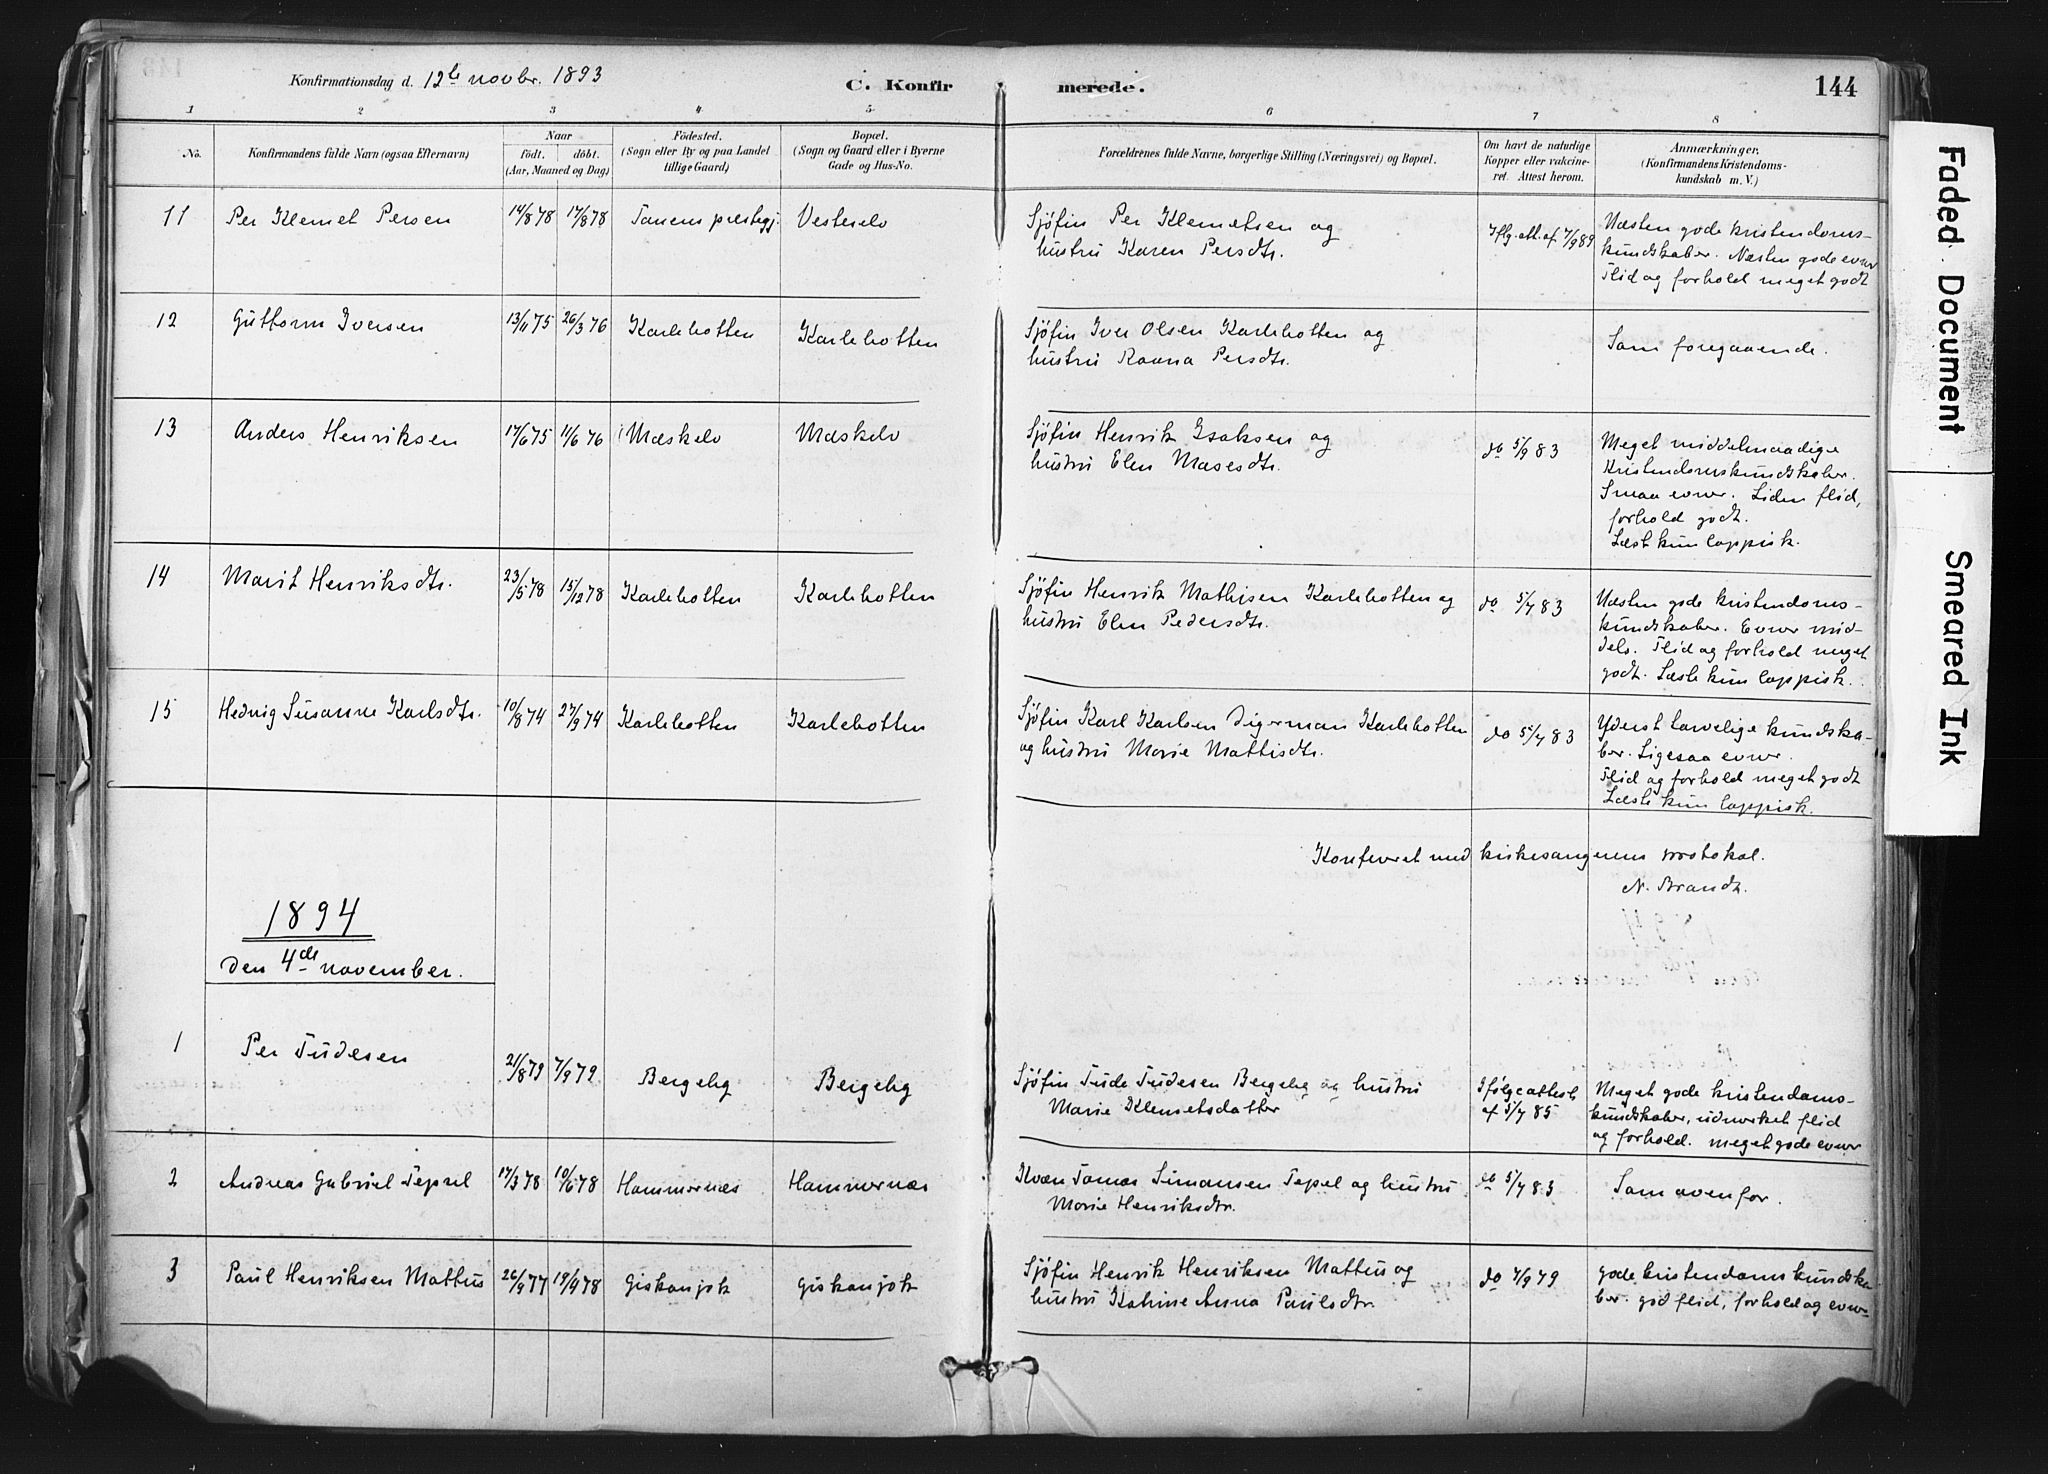 144
Konfirmationsdag d. 12te novbr. 1893
C. Konfirmerede.
1 2 3 4 5 6 7 8
No.
Konfirmandens fulde Navn (ogsaa Efternavn)
Naar
födt. döbt.
(Aar, Maaned og Dag)
Födested.
(Sogn eller By og paa Landet
tillige Gaard)
Bopæl.
(Sogn og Gaard eller i Byerne
Gade og Hus-No.
Forældrenes fulde Navne, borgerlige Stilling (Næringsvei) og Bopæl.
Om havt de naturlige
Kopper eller vakcine-
ret. Attest herom.
Anmærkninger,
(Konfirmandens Kristendoms-
kundskab m. V.)
11 Per Klemet Persen 14/8 78 17/8 78 Tanens prestegj. Vesterelv
Sjøfin Per Klemetsen og
hustru Karen Persdtr.
Iflg. att. af 7/9 89
Næsten gode kristendoms-
kundskaber. Næsten gode evner
Flid og forhold meget godt
12 Guttorm Iversen 13/11 75 26/3 76 Karlebotten Karlebotten
Sjøfin Iver Olsen Karlebotten og
hustru Raana Persdtr.
Som foregaaende.
13 Anders Henriksen 17/6 75 11/6 76 Mæskelv Mæskelv
Sjøfin Henrik Isaksen og
hustru Elen Masesdtr.
do 5/9 83
Meget middelmaadige
Kristendomskundskaber.
Smaa evner. Liden flid,
forhold godt.
Læste kun lappisk.
14 Marit Henriksdtr. 23/5 78 15/12 78 Karlebotten Karlebotten
Sjøfin Henrik Mathisen Karlebotten og
hustru Elen Pedersdtr.
do 5/7 83
Næsten gode kristendoms-
kundskaber. Evner mid-
dels. Flid og forhold meget
godt. Læste kun lappisk.
15 Hedvig Susanne Karlsdtr. 10/8 74 27/9 74 Karlebotten Karlebotten
Sjøfin Karl Karlsen Digerman Karlebotten
og hustru Marie Mattisdtr.
do 5/7 83
Yderst tarvelige kundska-
ber. Ligesaa evner.
Flid og forhold meget godt
Læste kun lappisk.
Konfereret med kirkesangerens protokol.
N. Brandt.
1894
Den 4de november.
1 Per Tudesen 21/8 79 7/9 79 Bergeby Bergeby
Sjøfin Tude Tudesen Bergeby og hustru
Marie Klemetsdatter
Ifølge attest
af 5/7 85
Meget gode kristendoms-
kundskaber, udmerket flid
og forhold. meget gode evner
2 Andreas Gabriel Tepsel 17/3 78 10/6 78 Hammernæs Hammernæs
Kvæn Tomas Simonsen Tepsel og hustru
Marie Henriksdtr.
do 5/7 83
Som ovenfor.
3 Paul Henriksen Mattus 26/9 77 19/4 78 Giskanjok Giskanjok
Sjøfin Henrik Henriksen Mattus og
hustru Katrine Anna Paulsdtr.
do 7/9 79
gode kristendoms kundska-
ber. god flid, forhold og evner
Faded Document
Smeared Ink